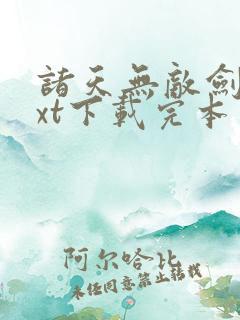 諸天無敵劍
xt下載完本
阿尔哈比
未经同意禁止转载